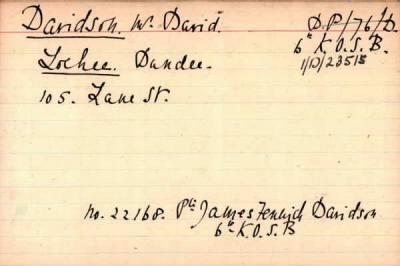 Davidson. Mr. David. D.P/76/D.
Lochee. Dundee. 6th K.O.S.B.
105. Lane St. 1/D/23515
No. 22168. Pte James Fenwick Davidson
6th K.O.S.B